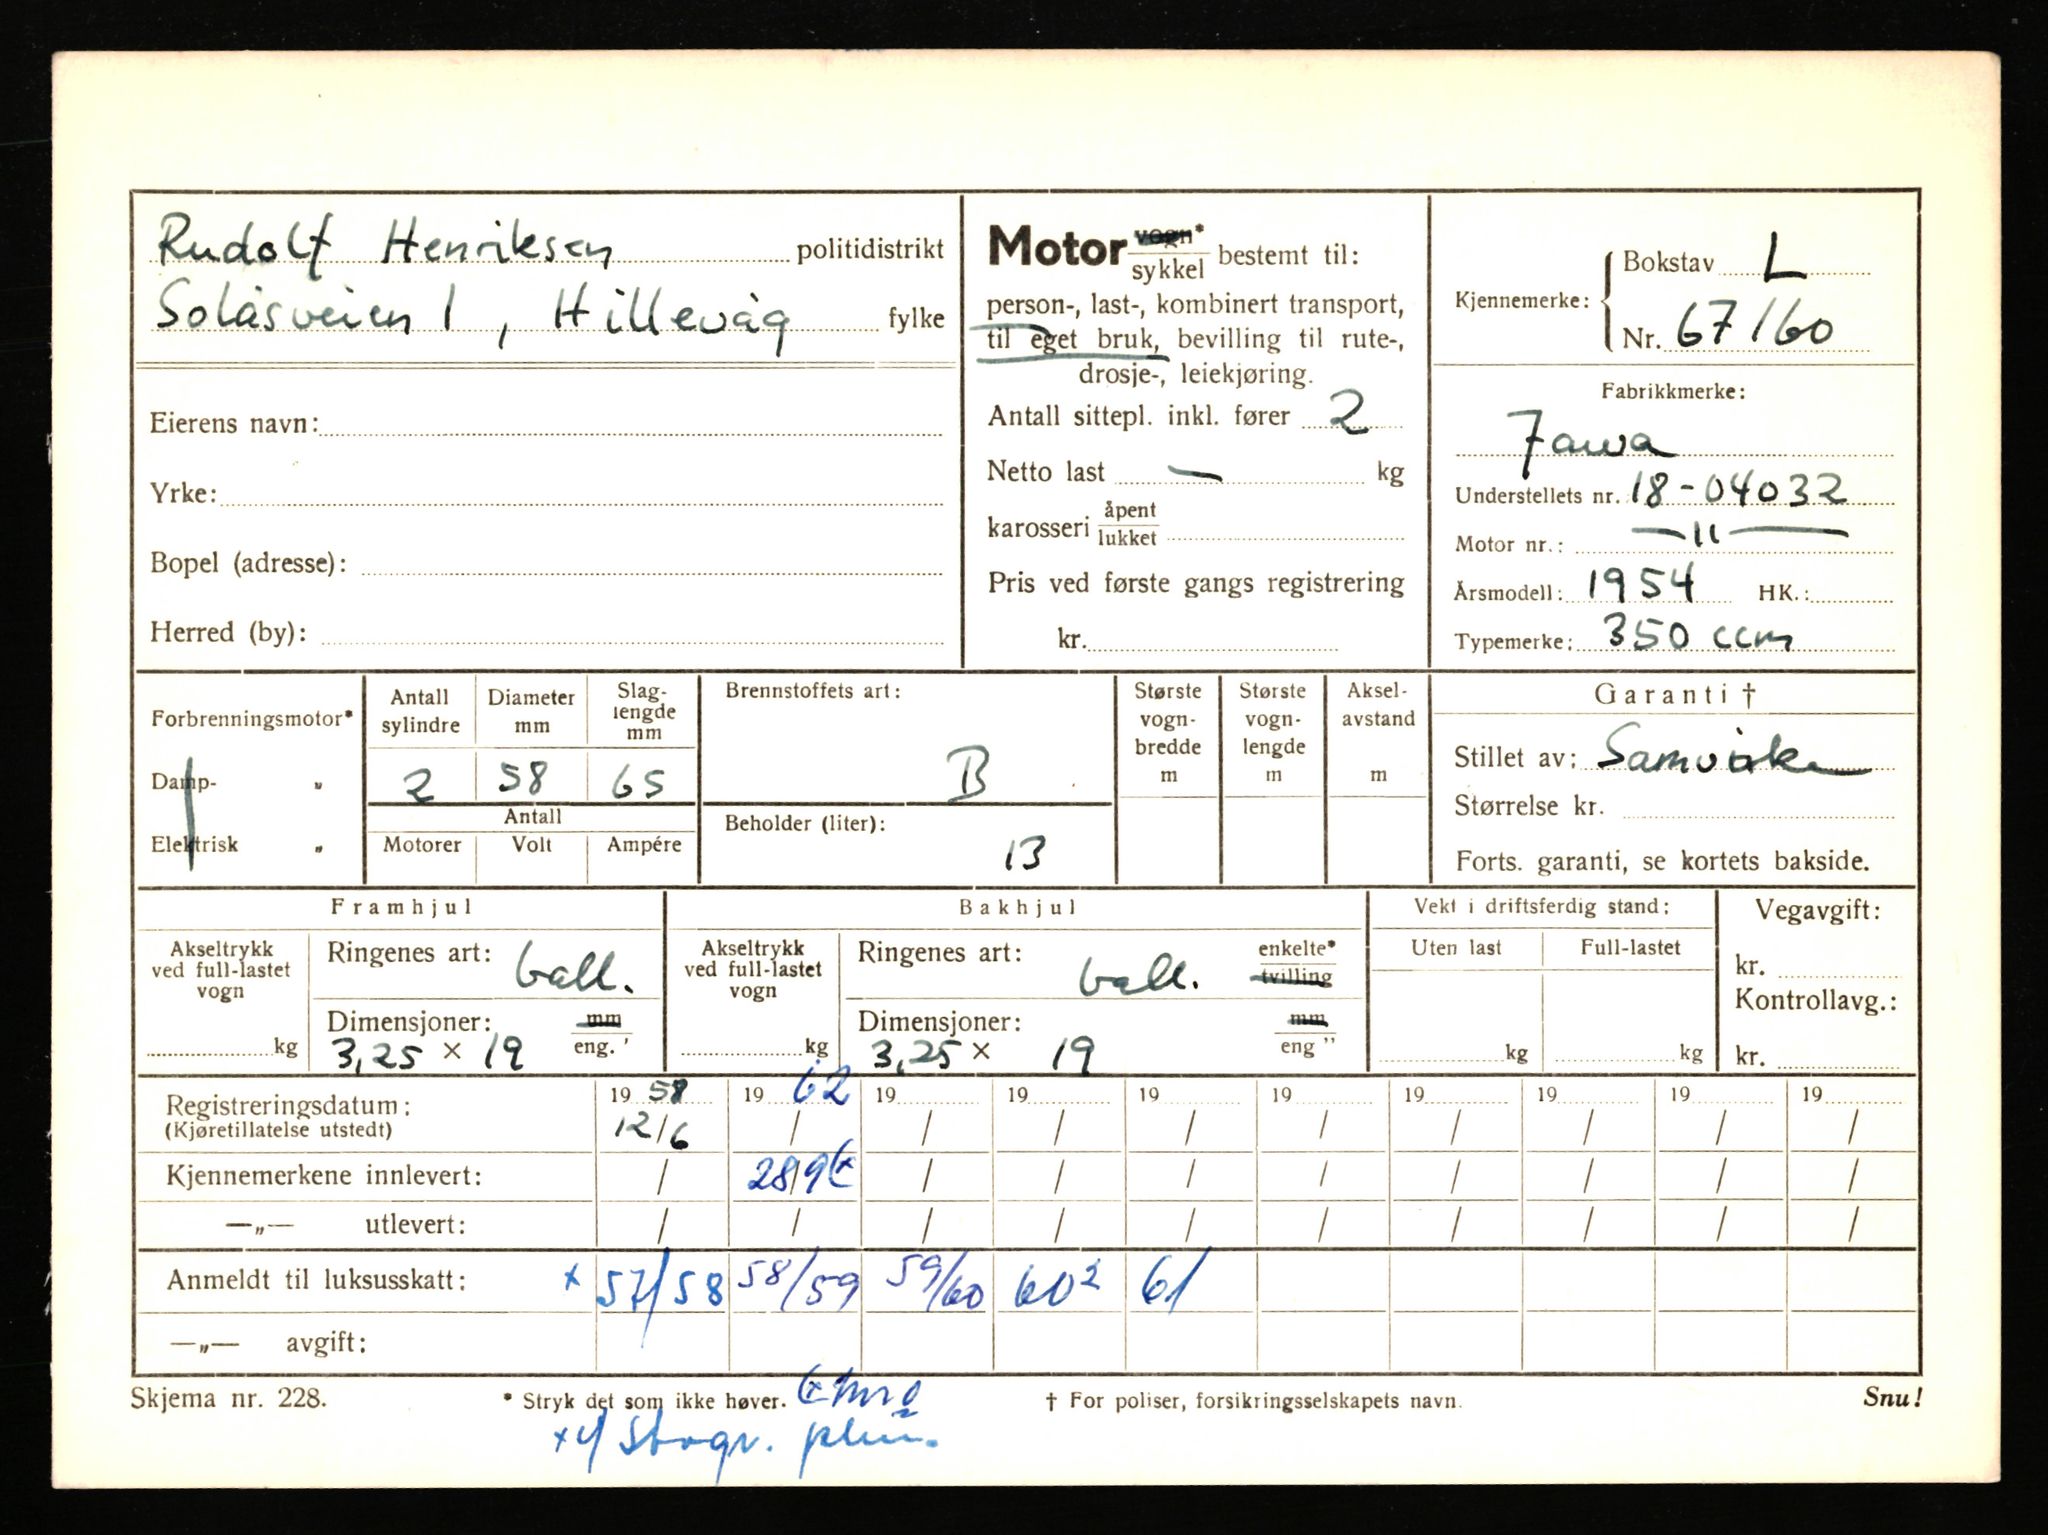 Rudolf Henriksen politidistrikt
Solåsveien 1, Hillevåg fylke
Eierens navn:
Yrke:
Bopel (adresse):
Herred (by):
Motor vogn* / sykkel bestemt til:
person-, last-, kombinert transport,
til eget bruk, bevilling til rute-,
drosje-, leiekjøring.
Antall sittepl. inkl. fører 2
Netto last — kg
karosseri åpent / lukket
Pris ved første gangs registrering
kr.
Kjennemerke: Bokstav L
Nr. 67160
Fabrikkmerke:
Jawa
Understellets nr. 18-04032
Motor nr.: —11—
Årsmodell: 1954 HK.:
Typemerke: 350 ccm
Forbrenningsmotor*
Damp- „
Elektrisk „
Antall sylindre
Diameter mm
Slag-lengde mm
2 58 65
Antall
Motorer Volt Ampére
Brennstoffets art:
B
Beholder (liter):
13
Største vogn-bredde m
Største vogn-lengde m
Aksel-avstand m
Garanti †
Stillet av: Samvirke
Størrelse kr.
Forts. garanti, se kortets bakside.
Framhjul
Akseltrykk ved full-lastet vogn
kg
Ringenes art: ball.
Dimensjoner: mm / eng. '
3,25 × 19
Bakhjul
Akseltrykk ved full-lastet vogn
kg
Ringenes art: ball. enkelte* / tvilling
Dimensjoner: mm / eng "
3,25 × 19
Vekt i driftsferdig stand:
Uten last Full-lastet
kg kg
Vegavgift:
kr.
Kontrollavg.:
kr.
Registreringsdatum: 19 58 19 62 19 19 19 19 19 19 19 19
(Kjøretillatelse utstedt) 12/6 / / / / / / / / /
Kjennemerkene innlevert: / 28/9 (x / / / / / / / /
—„— utlevert: / / / / / / / / / /
Anmeldt til luksusskatt: x 57/58 58/59 59/60 60² 61
—„— avgift:
Skjema nr. 228. * Stryk det som ikke høver. † For poliser, forsikringsselskapets navn. Snu!